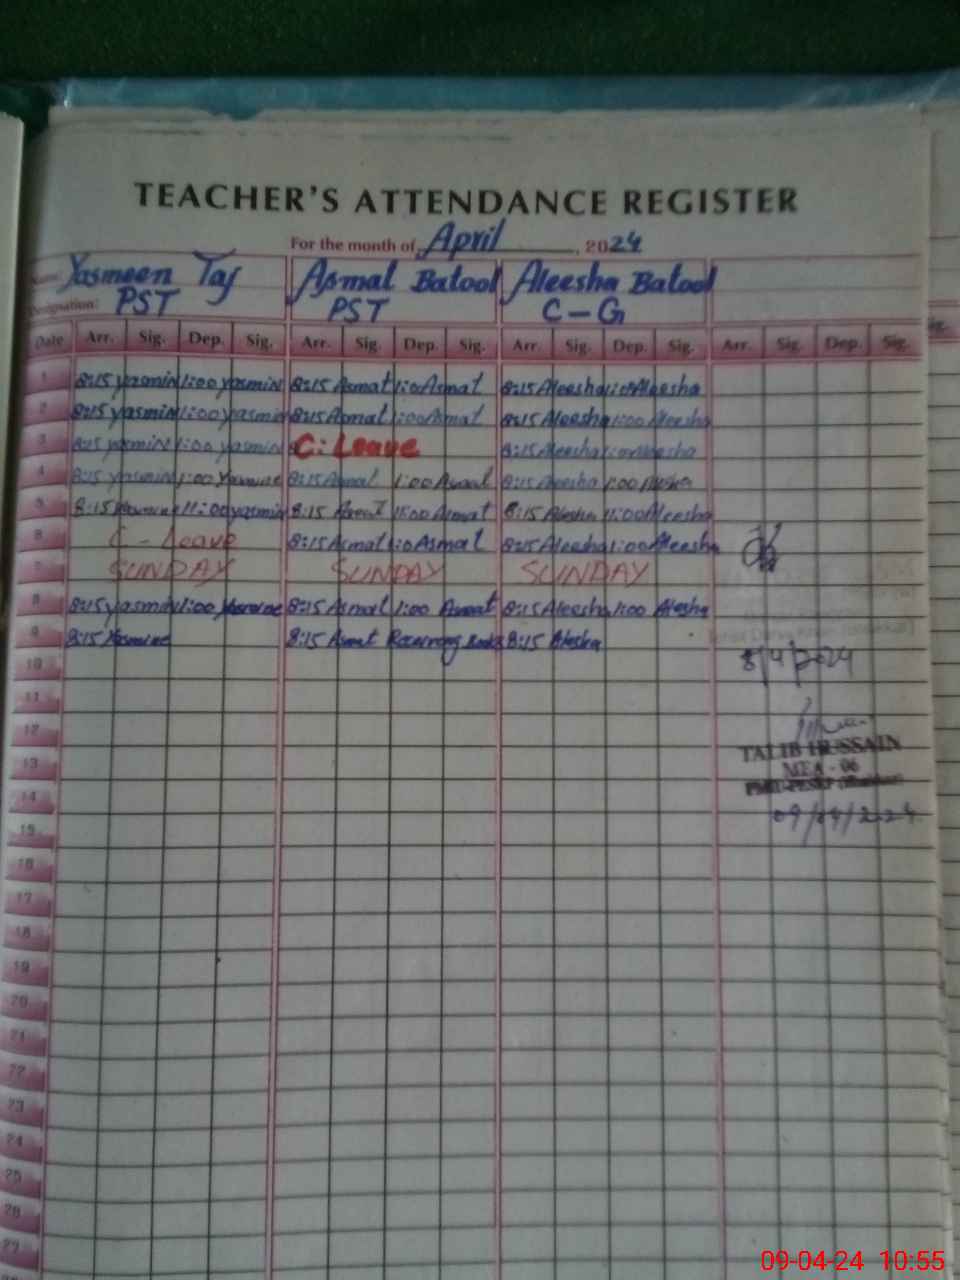 TEACHER'S ATTENDANCE REGISTER
For the month of April, 2024
Name: Yasmeen Taj Asmat Batool Aleesha Batool
Designation: PST PST C-G
Date Arr. Sig. Dep. Sig. Arr. Sig. Dep. Sig. Arr. Sig. Dep. Sig. Arr. Sig. Dep. Sig.
1 8:15 yasmin 1:00 yasmin 8:15 Asmat 1:0 Asmat 8:15 Aleesha 1:00 Aleesha
2 8:15 yasmin 1:00 yasmin 8:15 Asmat 1:00 Asmat 8:15 Aleesha 1:00 Aleesha
3 8:15 yasmin 1:00 yasmin C: Leave 8:15 Aleesha 1:00 Aleesha
4 8:15 yasmin 1:00 Yasmine 8:15 Asmat 1:00 Asmat 8:15 Aleesha 1:00 Alesha
5 8:15 Yasmine 1:00 yasmin 8:15 Asmat 1:00 Asmat 8:15 Alesha 1:00 Aleesha
6 C - Leave 8:15 Asmat 1:0 Asmat 8:15 Aleesha 1:00 Aleesha
7 SUNDAY SUNDAY SUNDAY
8 8:15 yasmin 1:00 Yasmine 8:15 Asmat 1:00 Asmat 8:15 Aleesha 1:00 Alesha
9 8:15 Yasmine 8:15 Asmat 8:15 Alesha
10 8/4/2024
11
12
TALIB HUSSAIN
13 MEA - 06
14
09/04/2024
15
16
17
18
19
20
21
22
23
24
25
26
27
09-04-24 10:55